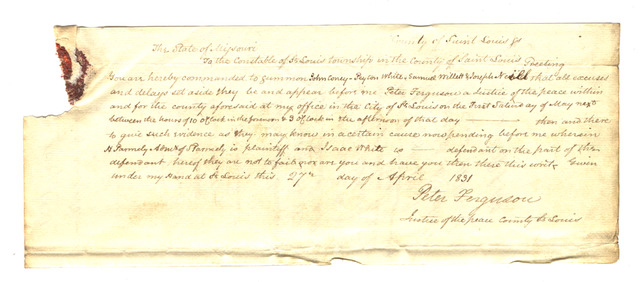 County of Saint Louis ss
The State of Missouri
To the Constable of St Louis township in the County of Saint Louis Greeting
You are hereby commanded to summon John Coney - Peyton White, Samuel Willett & Joseph that all excuses
and delays set aside they be and appear before me Peter Ferguson a Justice of the peace within
and for the county aforesaid at my office in the City of St Louis on the First Saturday of May next
between the hours of 10 O'Clock in the forenoon & 3 O'Clock in the afternoon of that day — then and there
to give such evidence as they may know in a certain cause now pending before me wherein
H Parmely Admr of Parmely is plaintiff and Isaac White is — defendant on the part of the
defendant hereof they are not to fail nor are you and have you then there this writ. Given
under my Hand at St Louis this 27th day of April 1831
Peter Ferguson
Justice of the peace County St Louis